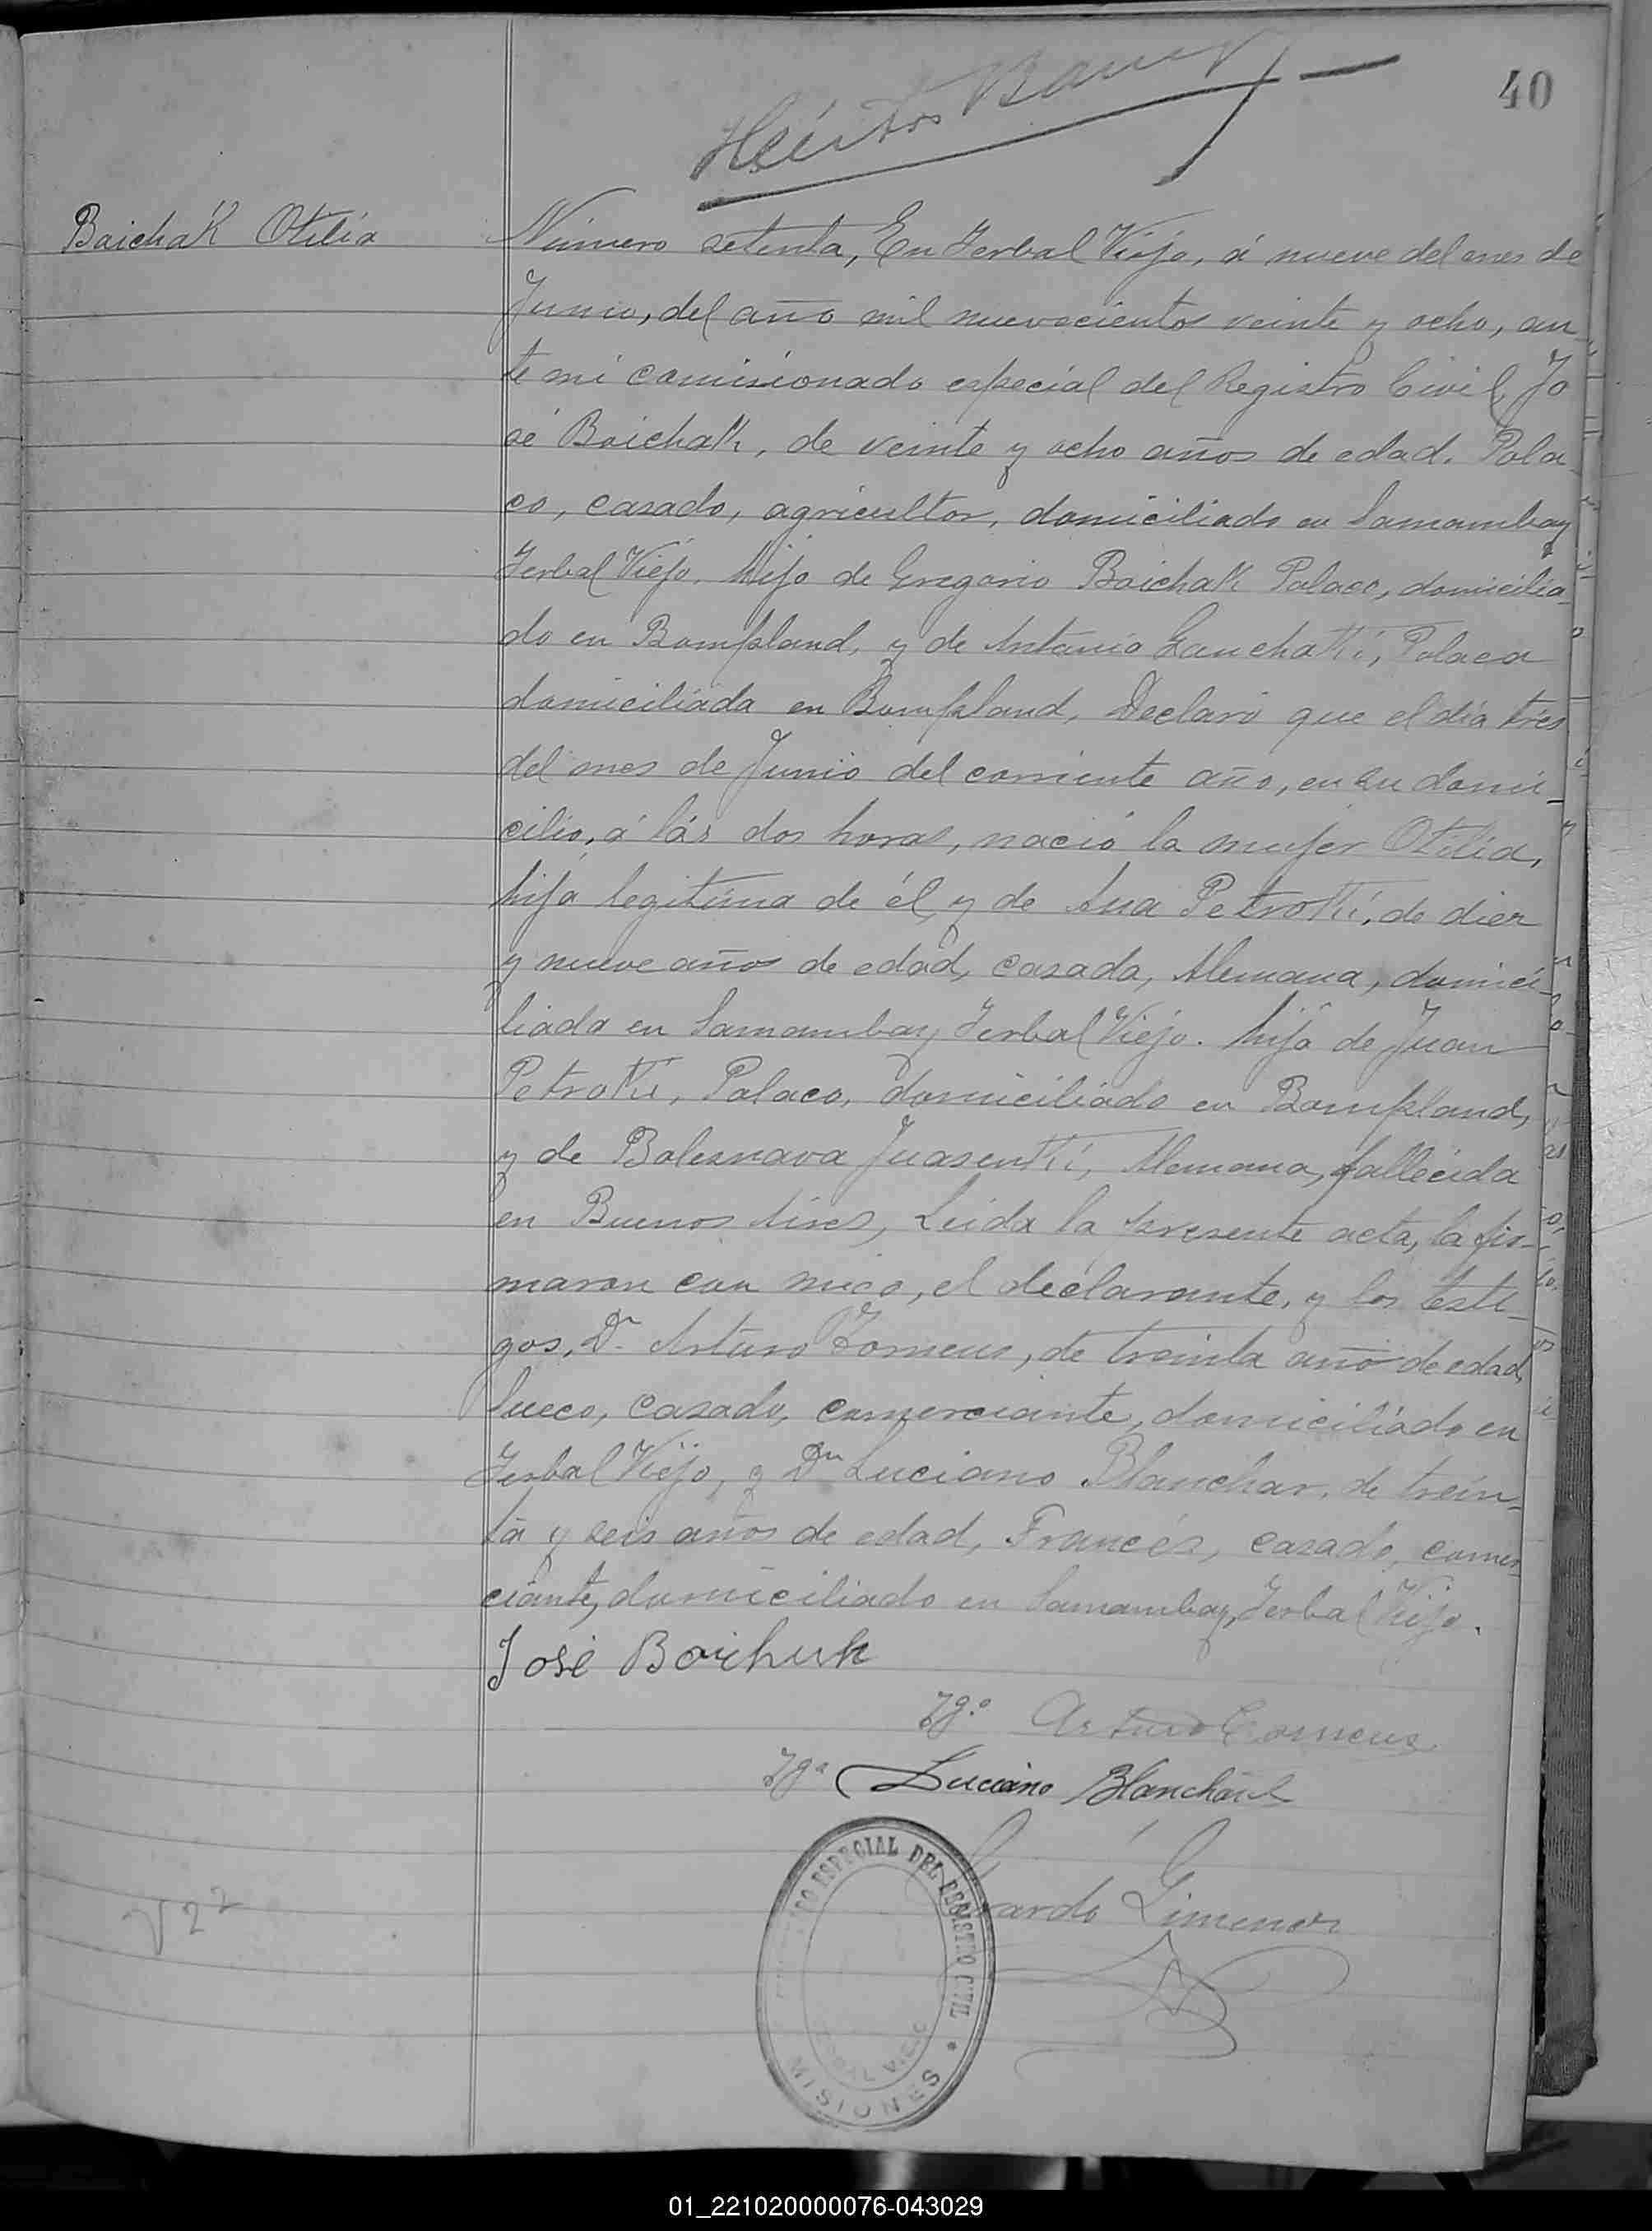 40
Héctor
Baichak Otilia
Número setenta, En Yerbal Viejo, á nueve del mes de
Junio, del año mil nuevecientos veinte y ocho, an
te mi comisionado especial del Registro Civil, Jo
sé Baichak, de veinte y ocho años de edad. Pola
co, casado, agricultor, domiciliado en Samambay
Yerbal Viejo. hijo de Gregorio Baichak Polaco, domicilia-
do en Bompland, y de Antonia Ganchakki, Polaca
domiciliada en Bompland, Declaró que el día tres
del mes de Junio del corriente año, en su domi-
cilio, á lás dos horas, nació la mujer Otilia,
hija legitima de él, y de Ana Petrokki, de diez
y nueve años de edad, casada, Alemana, domici-
liada en Samambay Yerbal Viejo. hija de Juan
Petrokki, Polaco, domiciliado en Bompland,
y de Balesnava Juasenkki, Alemana, fallecida
en Buenos Aires, Leida la presente acta, la fir-
maron con migo, el declarante, y los testi-
gos, Dn Arturo Forneus, de treinta año de edad,
Sueco, casado, comerciante, domiciliado en
Yerbal Viejo, y Dn Luciano Blanchar, de trein-
ta y seis años de edad, Francés, casado, comer-
ciante, domiciliado en Samambay, Yerbal Viejo.
José Boichuk
Tgo. Arturo Corneus
Tgo Luciano Blanchard
Gerardo Gimenez
ESPECIAL DEL REGISTRO CIVIL
YERBAL VIEJO
MISIONES
V22
01_221020000076-043029